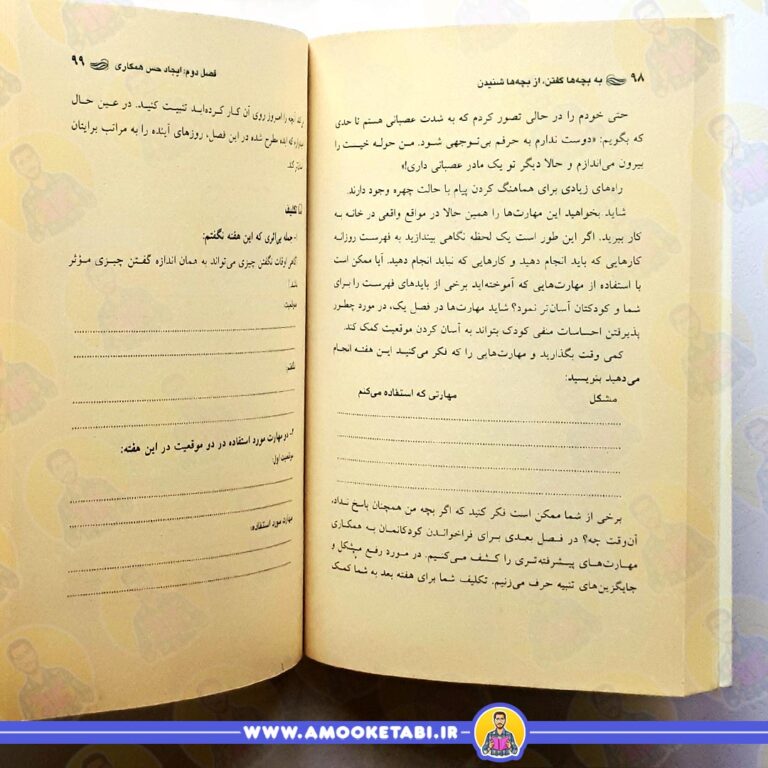 ۹۸ به بچه‌ها گفتن، از بچه‌ها شنیدن
حتی خودم را در حالی تصور کردم که به شدت عصبانی هستم تا حدی
که بگویم: «دوست ندارم به حرفم بی‌توجهی شود. من حوله خیست را
بیرون می‌اندازم و حالا دیگر تو یک مادر عصبانی داری!»
راه‌های زیادی برای هماهنگ کردن پیام با حالت چهره وجود دارند.
شاید بخواهید این مهارت‌ها را همین حالا در مواقع واقعی در خانه به
کار ببرید. اگر این طور است یک لحظه نگاهی بیندازید به فهرست روزانه
کارهایی که باید انجام دهید و کارهایی که نباید انجام دهید. آیا ممکن است
با استفاده از مهارت‌هایی که آموخته‌اید برخی از بایدهای فهرست را برای
شما و کودکتان آسان‌تر نمود؟ شاید مهارت‌ها در فصل یک، در مورد چطور
پذیرفتن احساسات منفی کودک بتواند به آسان کردن موقعیت کمک کند.
کمی وقت بگذارید و مهارت‌هایی را که فکر می‌کنید این هفته انجام
می‌دهید بنویسید:
مشکل مهارتی که استفاده می‌کنم
برخی از شما ممکن است فکر کنید که اگر بچه من همچنان پاسخ نداد،
آن‌وقت چه؟ در فصل بعدی برای فراخواندن کودکانمان به همکاری
مهارت‌های پیشرفته‌تری را کشف می‌کنیم. در مورد رفع مشکل و
جایگزین‌های تنبیه حرف می‌زنیم. تکلیف شما برای هفته بعد به شما کمک
فصل دوم: ایجاد حس همکاری ۹۹
آنچه را امروز روی آن کار کرده‌اید تثبیت کنید. در عین حال
که ایده مطرح شده در این فصل، روزهای آینده را به مراتب برایتان
کند.
تکلیف
۱- جمله بی‌اثری که این هفته نگفتم:
گاهی اوقات نگفتن چیزی می‌تواند به همان اندازه گفتن چیزی مؤثر
باشد!
موقعیت:
نگفتم:
۲- دو مهارت مورد استفاده در دو موقعیت در این هفته:
موقعیت اول:
مهارت مورد استفاده:
WWW.AMOOKETABI.IR